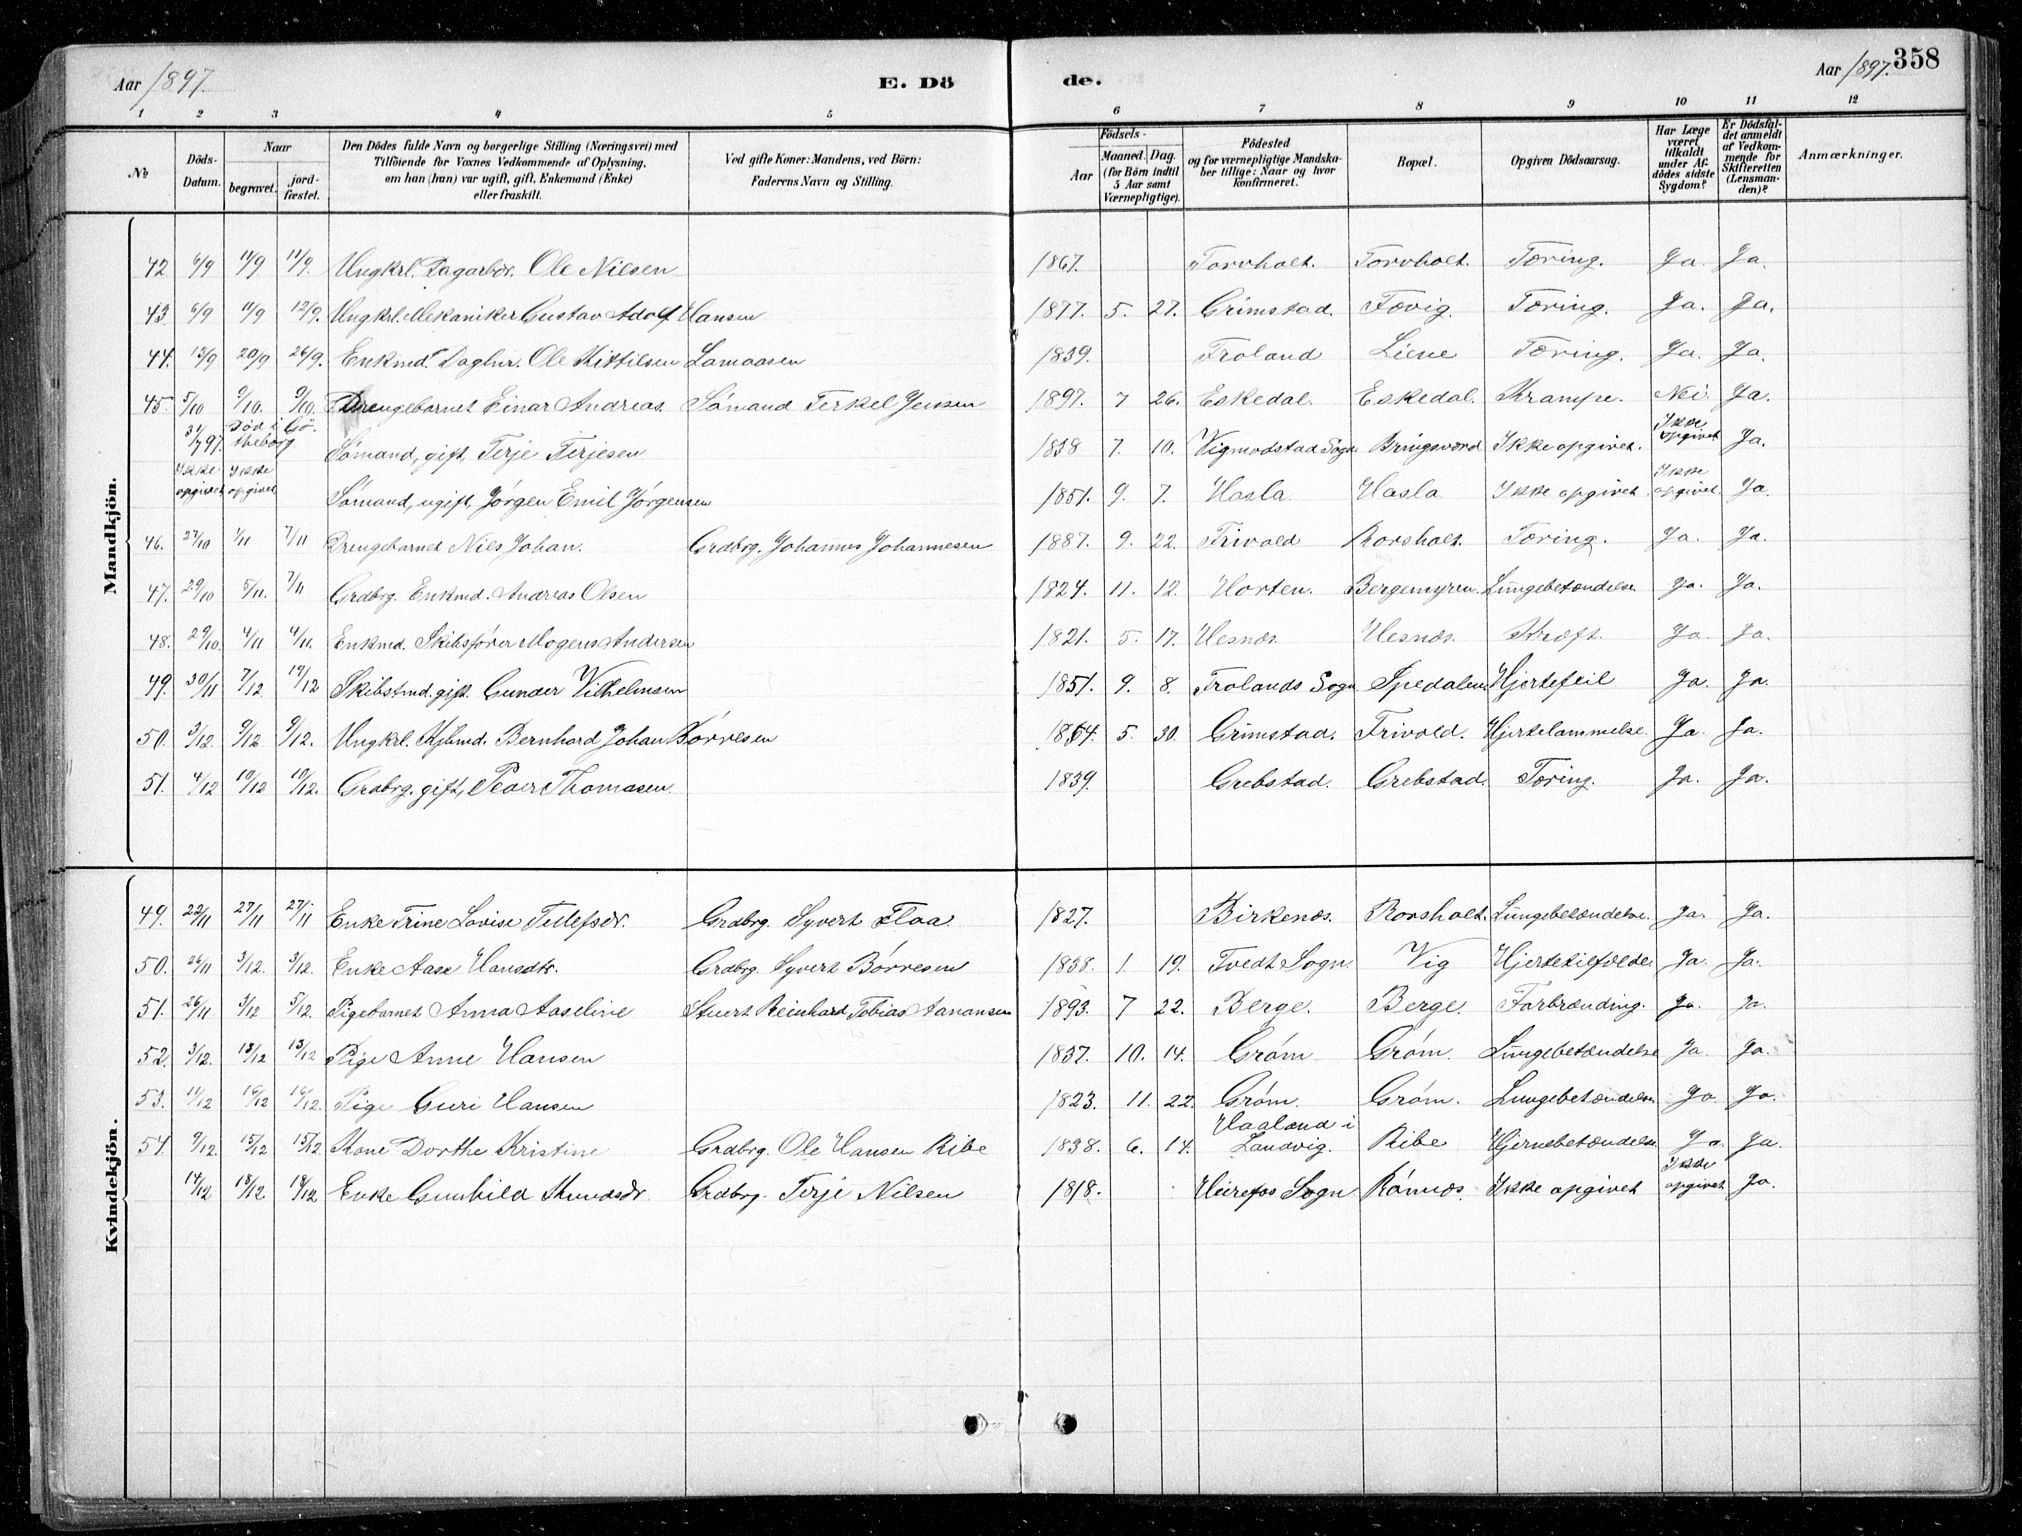 Aar 1897. E. Dö de. Aar 1897. 358
1 2 3 4 5 6 7 8 9 10 11 12
No
Döds-Datum.
Naar
begravet. jordfæstet.
Den Dödes fulde Navn og borgerlige Stilling (Næringsvei) med
Tilföiende for Voxnes Vedkommende af Oplysning,
om han (hun) var ugift, gift, Enkemand (Enke)
eller fraskilt.
Ved gifte Koner: Mandens, ved Börn:
Faderens Navn og Stilling.
Födsels-
Aar Maaned. Dag.
(for Börn indtil
5 Aar samt
Værnepligtige).
Födested
og for værnepligtige Mandska-
ber tillige: Naar og hvor
konfirmeret.
Bopæl.
Opgiven Dödsaarsag.
Har Læge
været
tilkaldt
under Af-
dödes sidste
Sygdom?
Er Dödsfal-
det anmeldt
af Vedkom-
mende for
Skifteretten
(Lensman-
den)?
Anmærkninger.
Mandkjön.
42 6/9 11/9 11/9. Ungkrl. Dagarbdr. Ole Nilsen 1867. Torvholt. Torvholt. Tæring. Ja. Ja.
43. 6/9 11/9 12/9. Ungkrl. Mekaniker Gustav Adolf Hansen 1877. 5. 27. Grimstad. Fævig. Tæring. Ja. Ja.
44. 13/9 20/9 26/9. Enkmd. Ole Kittilsen Lamaasen 1839. Froland Liene Tæring. Ja. Ja.
45. 5/10 9/10. 9/10. Drengebarnet Einar Andreas. Sømand Terkel Jensen 1897. 7 26. Eskedal. Eskedal. Krampe. Nei. Ja.
31/7 97. Død i Gøtheborg Sømand, gift, Terje Terjesen 1838 7. 10. Vigmodstad Sogn Bringsværd Ikke opgivet. Ikke opgivet Ja.
Ikke opgivet Ikke opgivet Sømand, ugift, Jørgen Emil Jørgensen 1851. 9. 7. Hasla. Hasla Ikke opgivet Ikke opgivet Ja.
46. 27/10 1/11 7/11 Drengebarnet Nils Johan. Grdbrg. Johannes Johannesen 1887. 9. 22. Frivold Rorsholt. Tæring. Ja. Ja.
47. 29/10 5/11. 7/11 Grdbrg. Enkmd. Andreas Olsen 1824. 11. 12. Horten. Bergemyren. Lungebetændelse Ja. Ja.
48. 29/10. 4/11 4/11. Enkmd. Skibsfører Mogens Andersen 1821. 5. 17. Hesnæs. Hesnæs. Kræft. Ja. Ja.
49. 30/11 7/12 19/12 Skibstmd. gift. Gunder Vilhelmsen 1851. 9. 8. Frolands Sogn Spedalen Hjertefeil Ja. Ja.
50. 3/12. 9/12 9/12. Ungkrl. Bernhard Johan Børresen 1864. 5. 30. Grimstad. Frivold. Hjertelammelse. Ja. Ja.
51. 4/12 10/12 10/12. Grdbrg. gift, Peder Thomasen. 1839. Grebstad. Grebstad. Tæring. Ja. Ja.
Kvindekjön.
49. 22/11 27/11 27/11 Enke Trine Lovise Tellefsdr. Grdbrg. Syvert Flaa. 1827. Birkenæs. Rorsholt. Lungebetændelse. Ja. Ja.
50. 26/11 3/12. 3/12. Enke Aase Hansdtr. Grdbrg. Syvert Børresen 1838. 1. 19. Tvedt Sogn. Vig Hjertetilfælde. Ja. Ja.
51. 26/11 3/12 5/12. Pigebarnet Anna Aaseline Stuert Reinhard Tobias Aanansen 1893. 7 22. Berge. Berge. Forbrænding. Ja. Ja.
52. 3/12. 13/12 13/12 Pige Anne Hansen 1837. 10. 14. Grøm Grøm. Lungebetændelse Ja. Ja.
53. 11/12 16/12 16/12. Pige Guri Hansen 1823. 11. 22. Grøm. Grøm. Lungebetændelse Ja. Ja.
54. 9/12. 15/12 15/12 Kone Dorthe Kristine Grdbrg. Ole Hansen Ribe 1838. 6. 14. Haaland i Landvig. Ribe Hjernebetændelse Ja. Ja.
14/12 18/12 18/12 Enke Gunhild Knudsdr. Grdbrg. Terje Nilsen 1818. Heirefos Sogn Rønnæs. Ikke opgivet Ikke opgivet Ja.